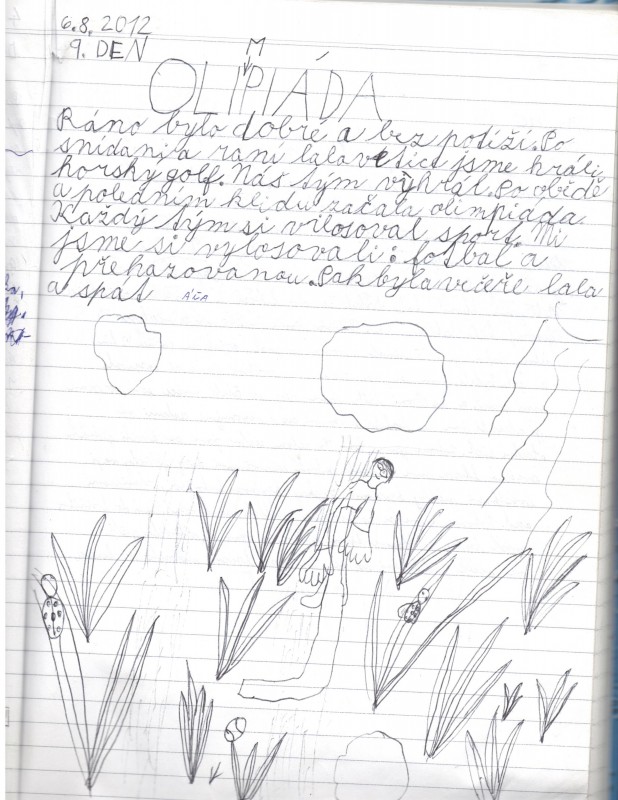 6.8.2012
9. DEN
M
OLIPIÁDA
Ráno bylo dobré a bez potíží. Po
snídani a raní lalavečici jsme hráli
horsky golf. Nás tým vyhrál. Po obědě
a poledním klidu začala olimpiáda.
Každý tým si vilosoval sport. Mi
jsme si vylosovali: fotbal a
přehazovanou. Pak byla večeře lala
a spát